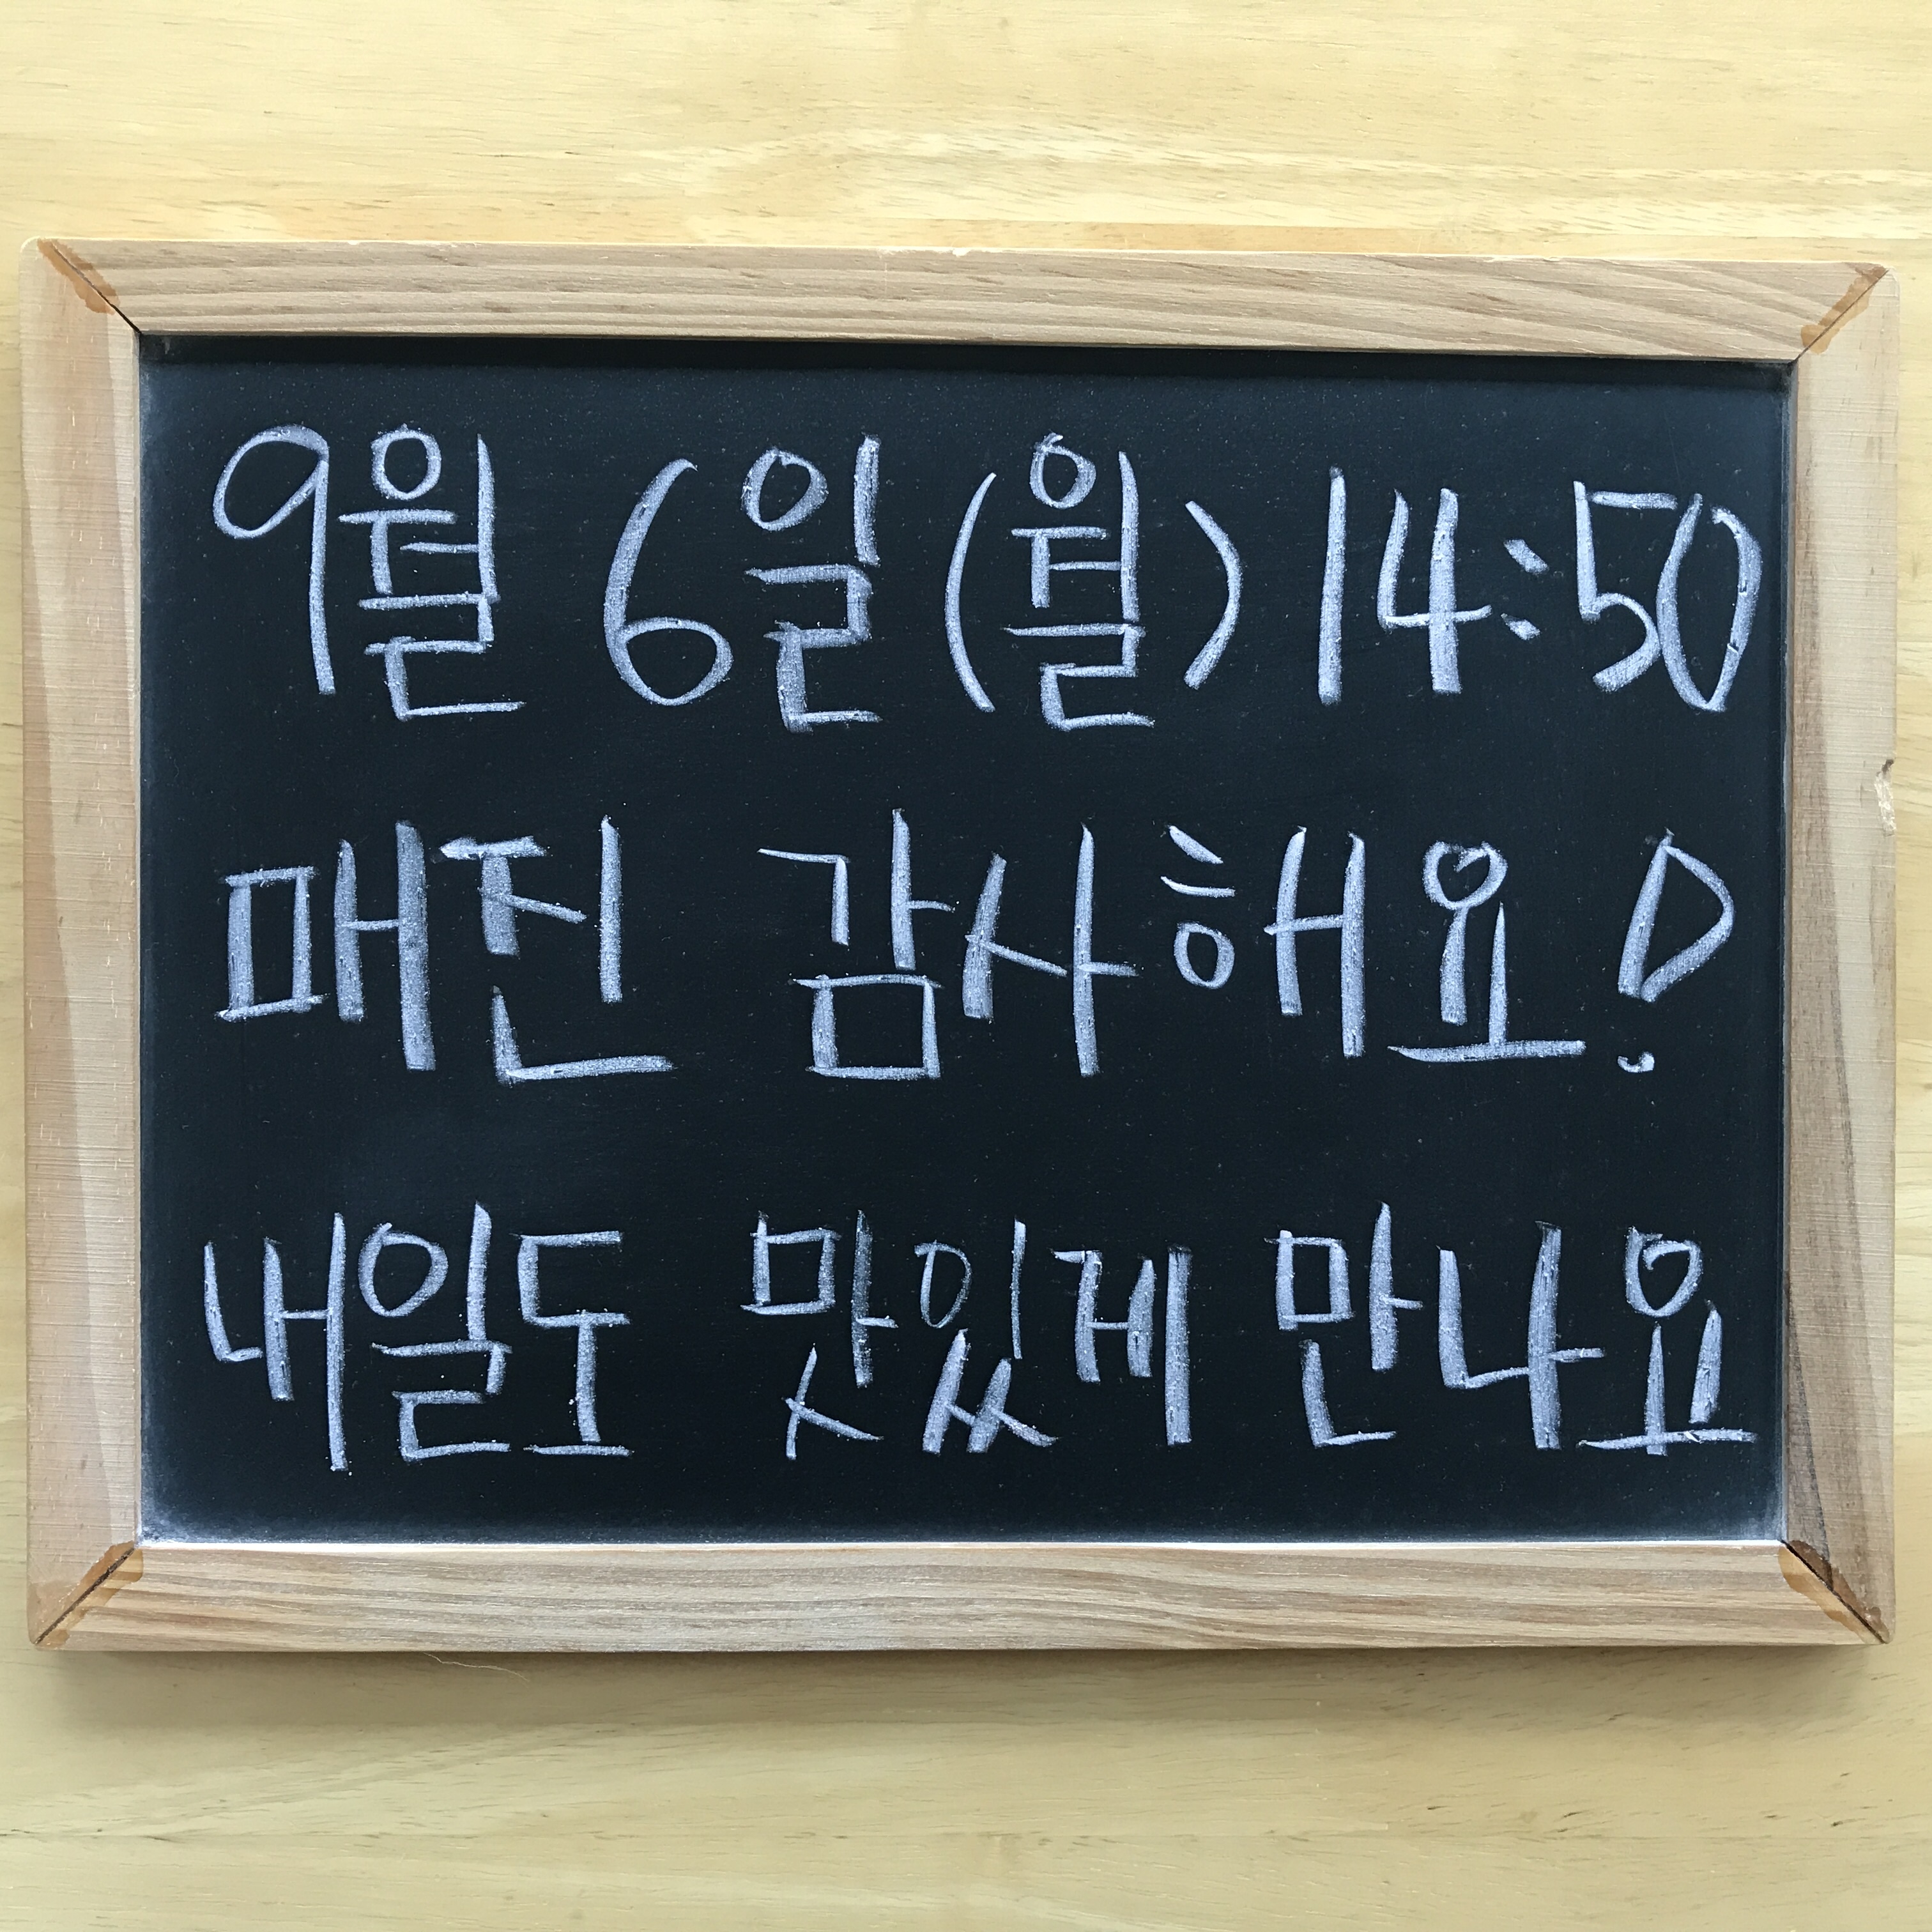 9월 6일(월) 14:50
매진 감사해요!
내일도 맛있게 만나요